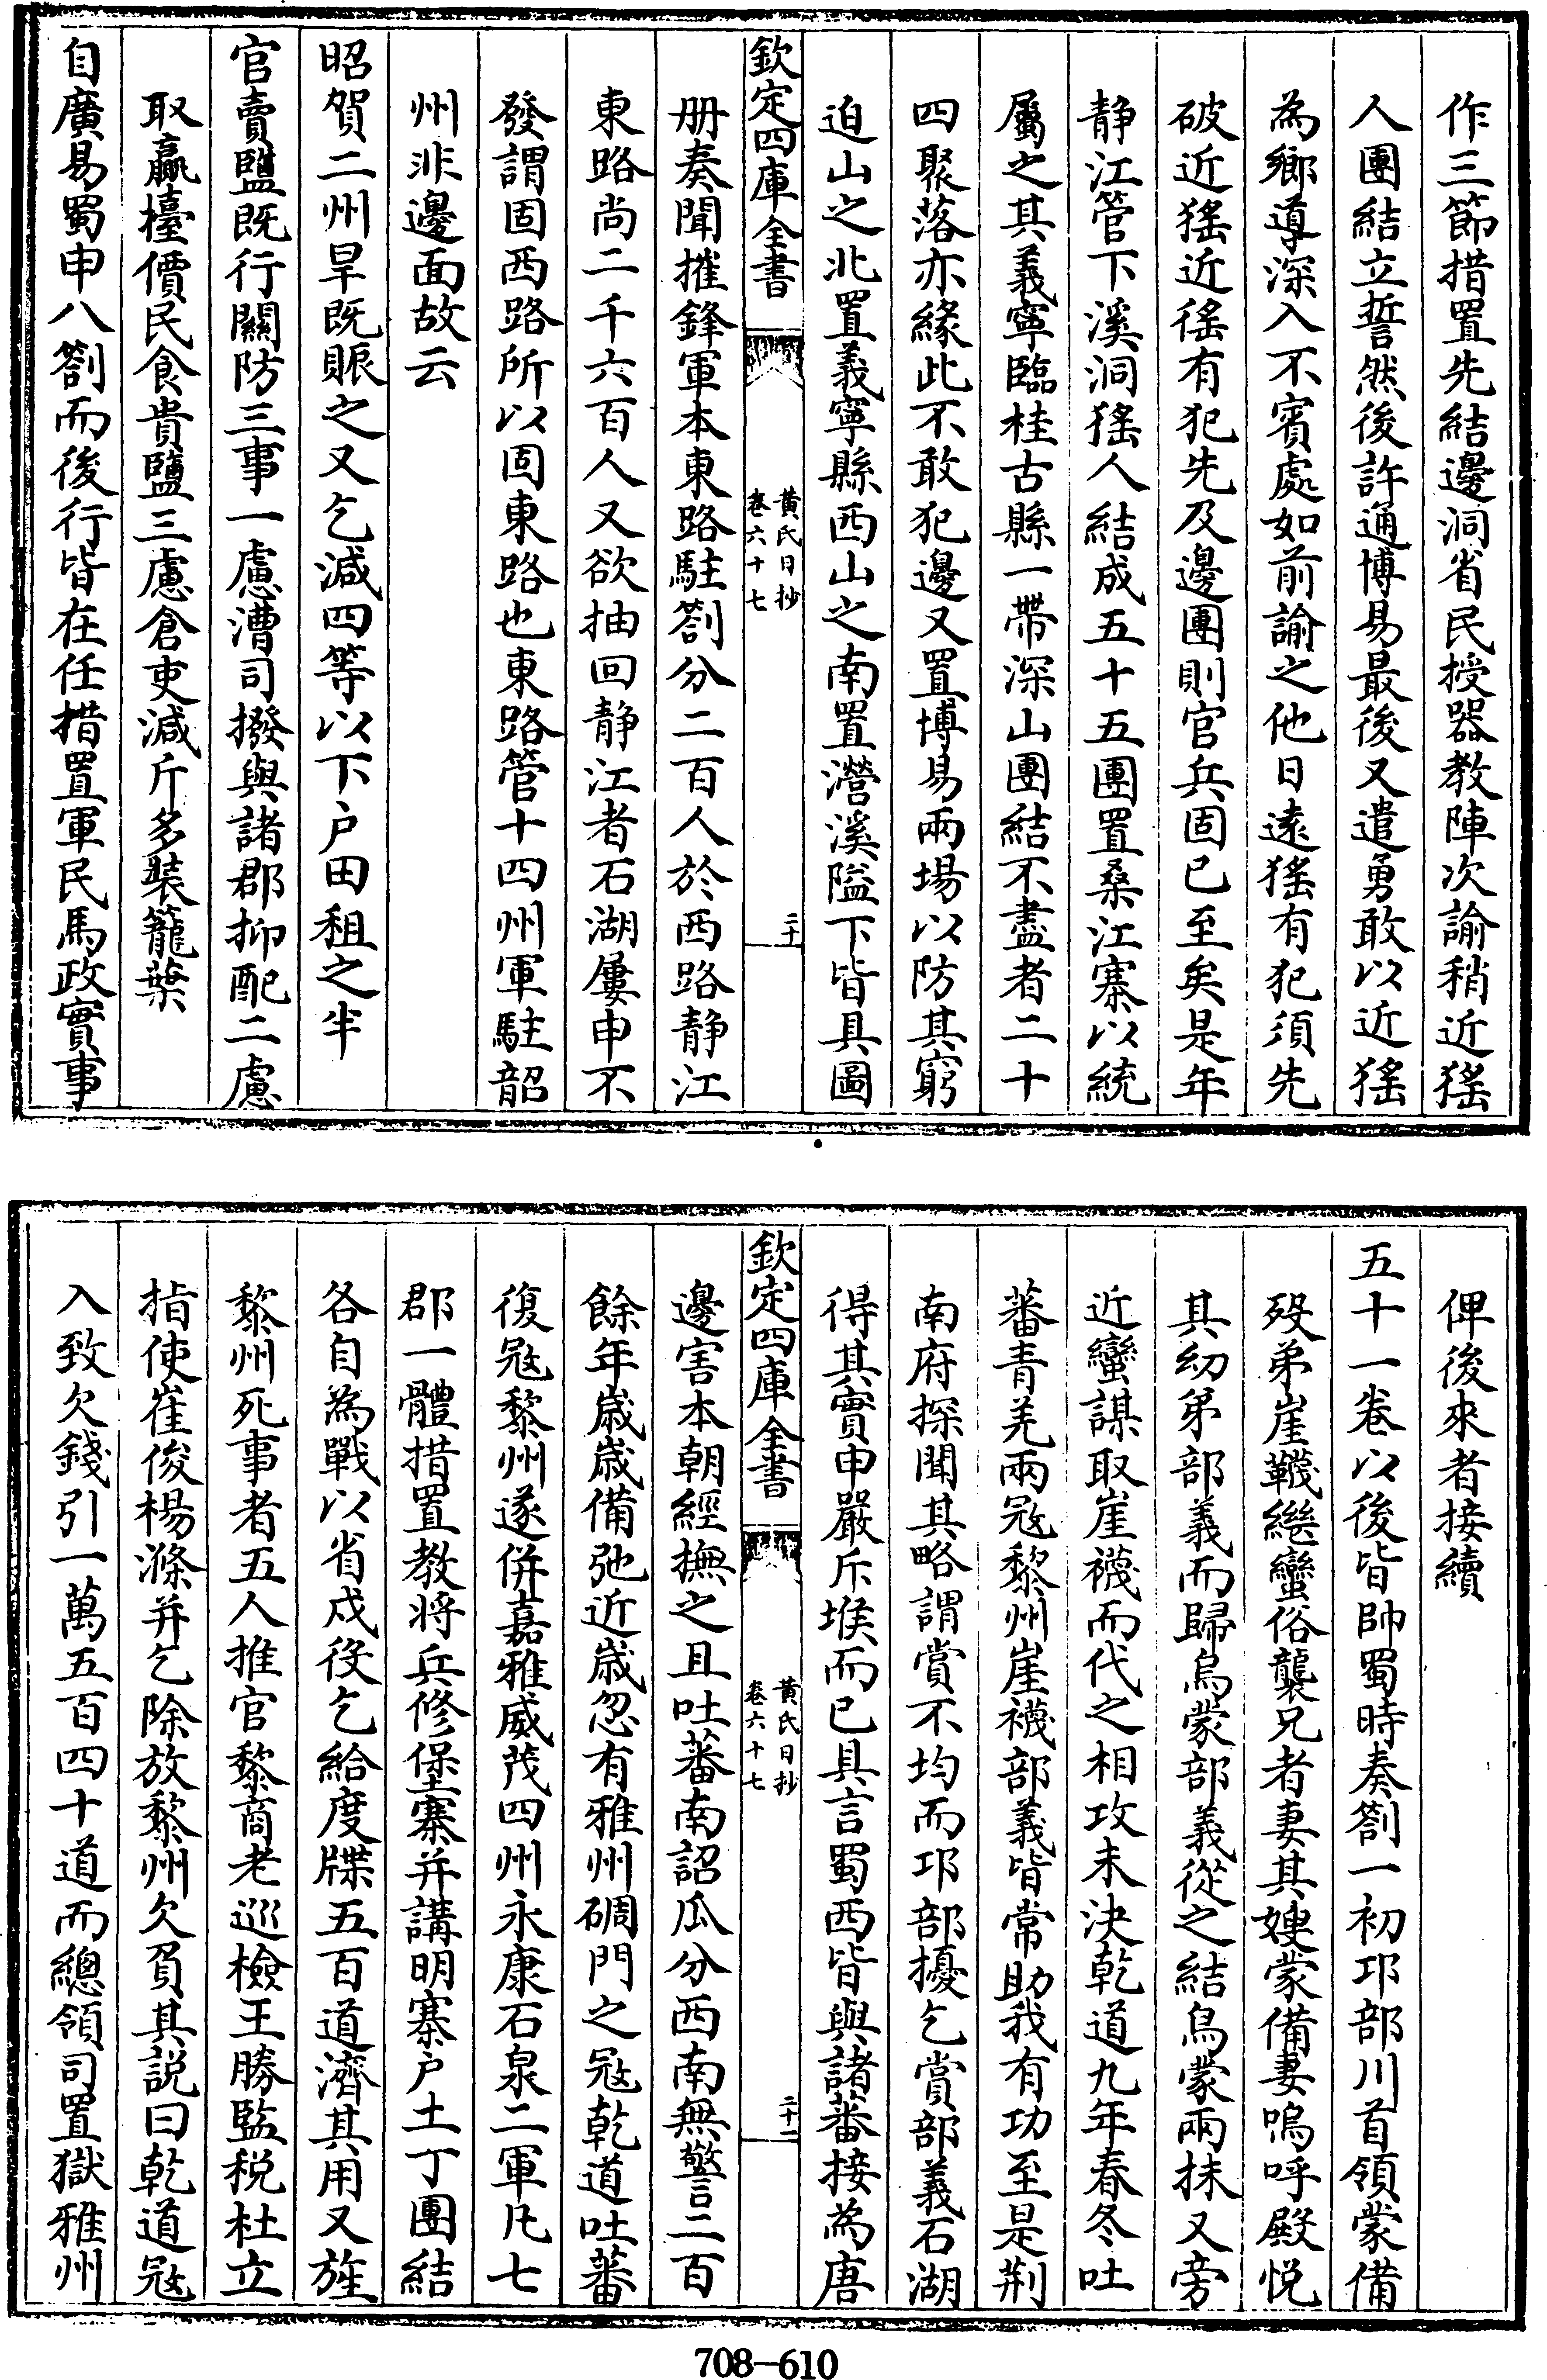 作三節措置先結邊洞省民授器教陣次諭稍近猺
人團結立誓然後許通博易最後又遣勇敢以近猺
為鄉導深入不賓處如前諭之他日遠猺有犯須先
破近猺近徭有犯先及邊團則官兵固已至矣是年
静江管下溪洞猺人結成五十五團置桑江寨以統
屬之其義寧臨桂古縣一帶深山團結不盡者二十
四聚落亦緣此不敢犯邊又置博易兩場以防其窮
迫山之北置義寧縣西山之南置灐溪隘下皆具圖
欽定四庫全書
黄氏日抄
卷六十七
二十
册奏聞摧鋒軍本東路駐劄分二百人於西路静江
東路尚二千六百人又欲抽回静江者石湖屢申不
發謂固西路所以固東路也東路管十四州軍駐韶
州非邊面故云
昭賀二州旱既賑之又乞減四等以下戶田租之半
官賣鹽既行關防三事一慮漕司撥與諸郡抑配二慮
取贏擡價民食貴鹽三慮倉吏減斤多裝籠葉
自廣易蜀申八劄而後行皆在任措置軍民馬政實事
俾後來者接續
五十一卷以後皆帥蜀時奏劄一初邛部川首領蒙備
殁弟崖韈繼蠻俗襲兄者妻其嫂蒙備妻嗚呼殿悦
其幼弟部義而歸烏蒙部義從之結烏蒙兩抹又旁
近蠻謀取崖襪而代之相攻未決乾道九年春冬吐
蕃青羌兩冦黎州崖襪部義皆常助我有功至是荆
南府探聞其略謂賞不均而邛部擾乞賞部義石湖
得其實申嚴斥堠而已具言蜀西皆與諸蕃接為唐
欽定四庫全書
黄氏日抄
卷六十七
二十一
邊害本朝經撫之且吐蕃南詔瓜分西南無警二百
餘年歳歳備弛近歳忽有雅州碉門之冦乾道吐蕃
復冦黎州遂併嘉雅威茂四州永康石泉二軍凡七
郡一體措置教将兵修堡寨并講明寨戶土丁團結
各自為戰以省戍役乞給度牒五百道濟其用又旌
黎州死事者五人推官黎商老巡檢王勝監税杜立
指使崔俊楊滌并乞除放黎州欠負其説曰乾道冦
入致欠錢引一萬五百四十道而總領司置獄雅州
708-610